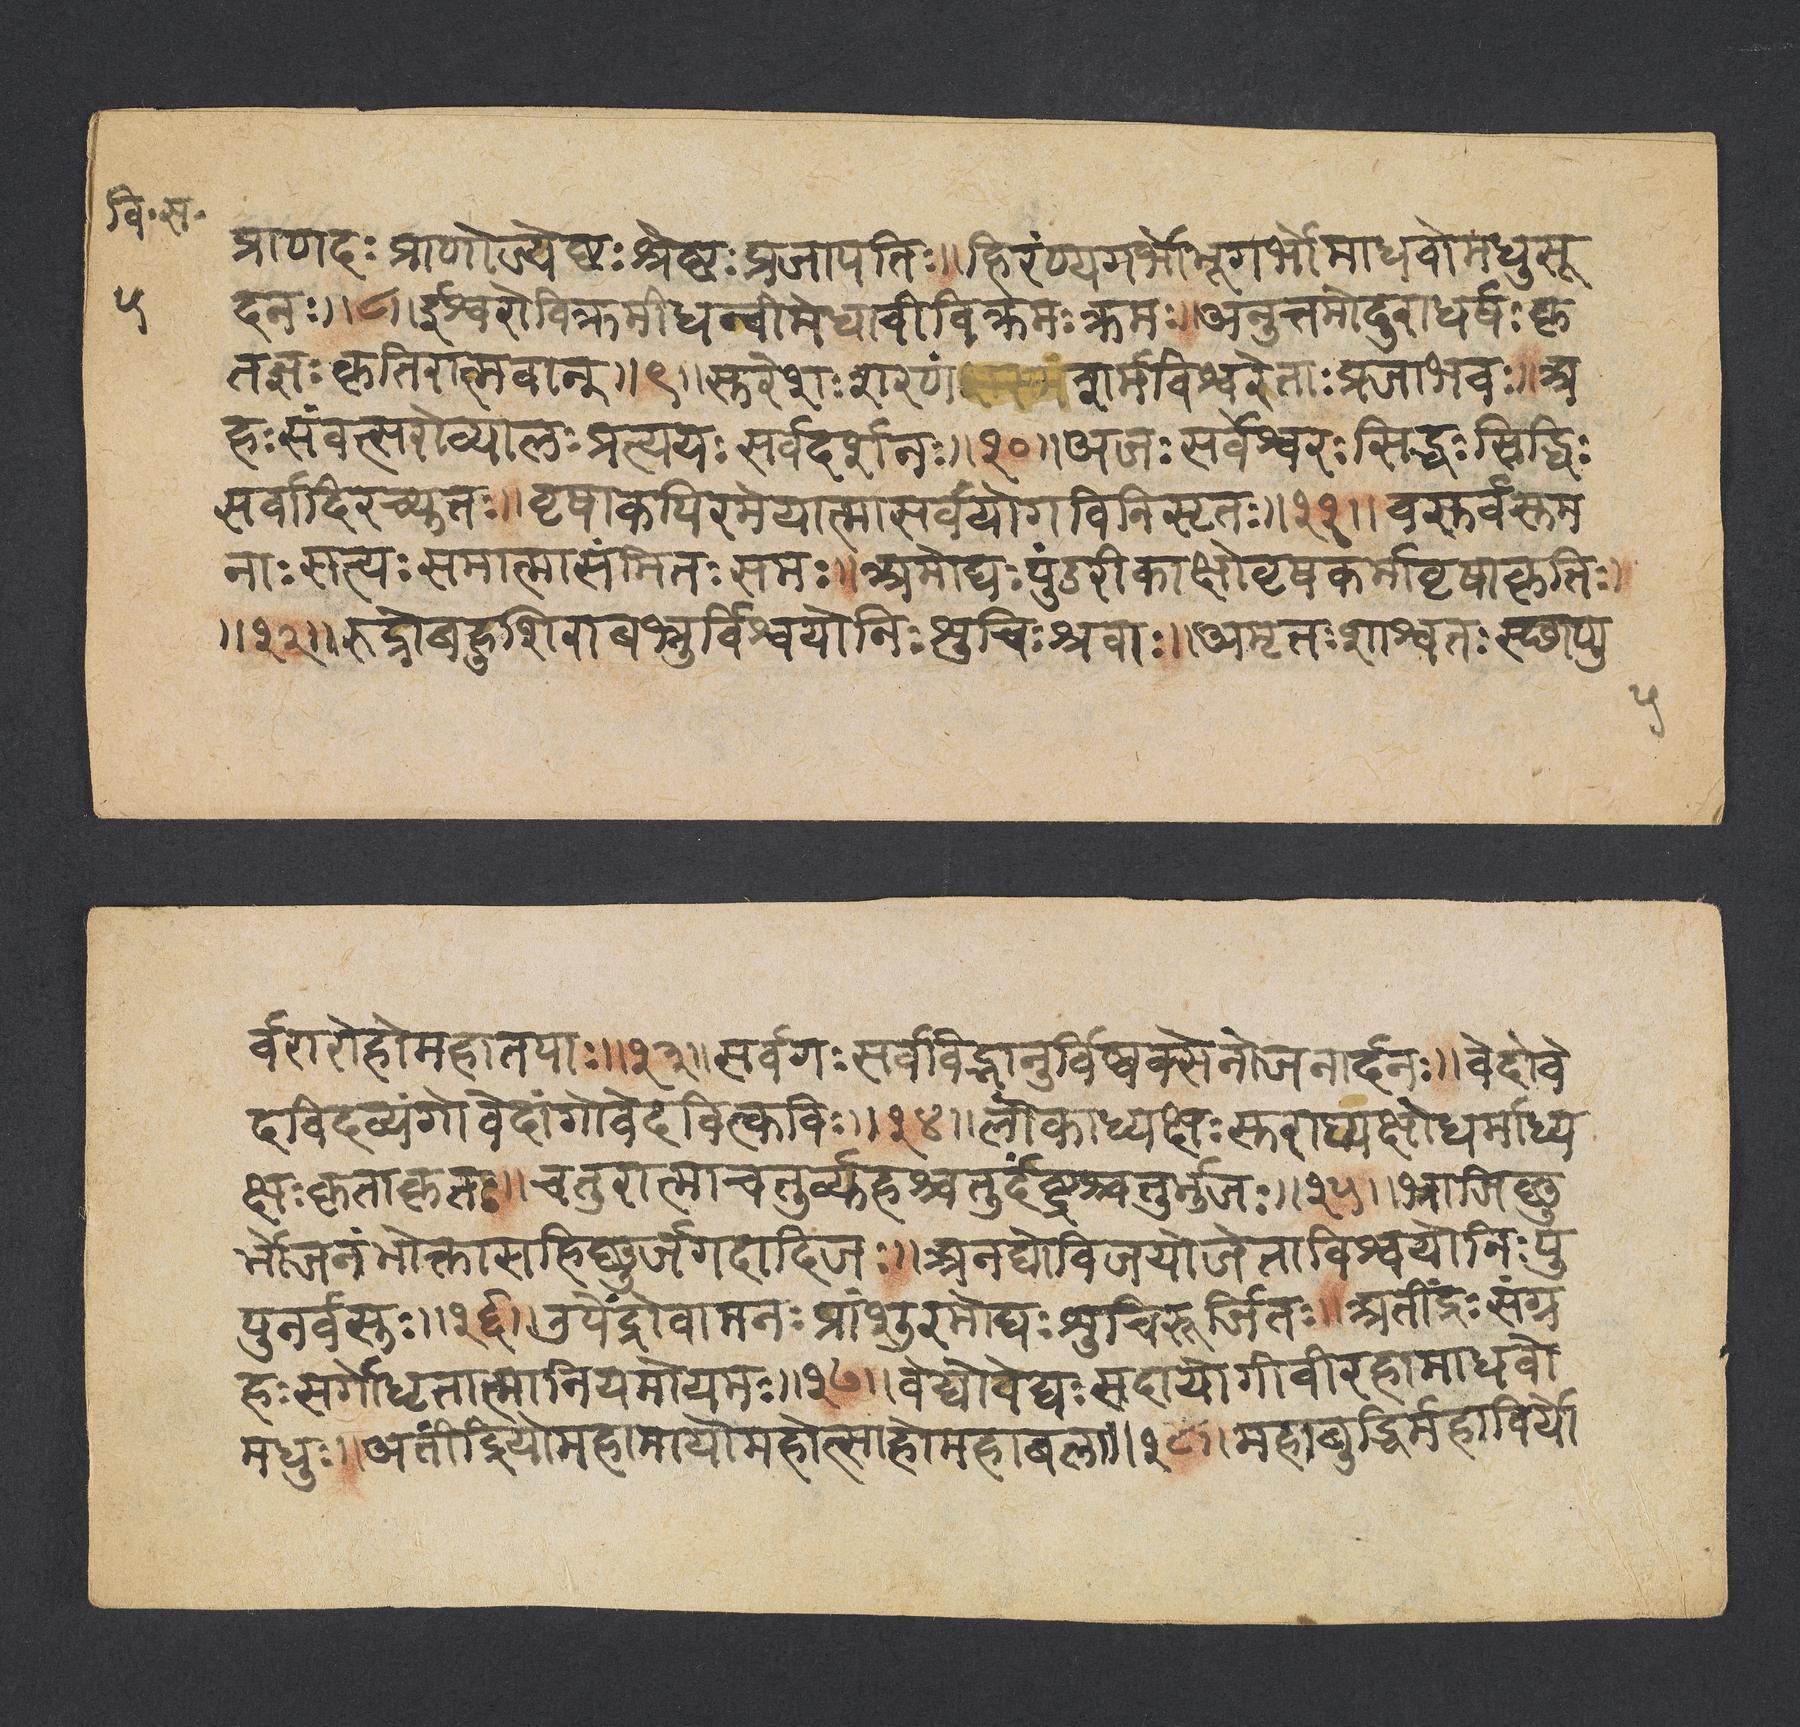 वि॰स॰
५
प्राणदः प्राणोज्येष्ठः श्रेष्ठः प्रजापतिः॥हिरंण्यगर्भोभूगर्भोमाधवोमधुसू
दनः॥८॥ईश्वरोविक्रमीधन्वीमेधावीविक्रमः क्रमः॥अनुत्तमोदुराधर्षः कृ
तज्ञः कृतिरात्मवान्॥९॥सुरेशः शरणं शर्मविश्वरेताः प्रजाभवः॥अ
हः संवत्सरोव्यालः प्रत्ययः सर्वदर्शनः॥१०॥अजः सर्वेश्वरः सिद्धः सिद्धिः
सर्वादिरच्युतः॥वृषाकपिरमेयात्मासर्वयोगविनिसृतः॥११॥वसुर्वसुम
नाः सत्यः समात्मासंमितः समः॥अमोघः पुंडरीकाक्षोवृषकर्मावृषाकृतिः।
॥१२॥रुद्रोबहुशिराबभ्रुर्विश्वयोनिः शुचिः श्रवाः॥अमृतः शाश्वतः स्छाणु
५
र्वरारोहोमहातपाः॥१३॥सर्वगः सर्वविद्भानुर्विष्वक्सेनोजनार्दनः॥वेदोवे
दविदव्यंगोवेदांगोवेदवित्कविः॥१४॥लोकाध्यक्षः सुराध्यक्षोधर्माध्य
क्षः कृताकृतः॥चतुरात्माचतुर्व्यूहश्चतुर्दंष्ट्रश्चतुर्भुजः॥१५॥भ्राजिष्णु
र्भोजनंभोक्तासहिष्णुर्जगदादिजः॥अनघोविजयोजेताविश्वयोनिः पु
पुनर्वसुः॥१६॥उपेंद्रोवामनः प्रांशुरमोघः शुचिरूर्जितः॥अतींद्रः संग्र
हः सर्गोधृतात्मानियमोयमः॥१७॥वेद्योवेद्यः सदायोगीवीरहामाधवो
मधुः॥अतींद्रियोमहामायोमहोत्साहोमहाबलः॥१८॥महाबुद्धिर्महाविर्यो